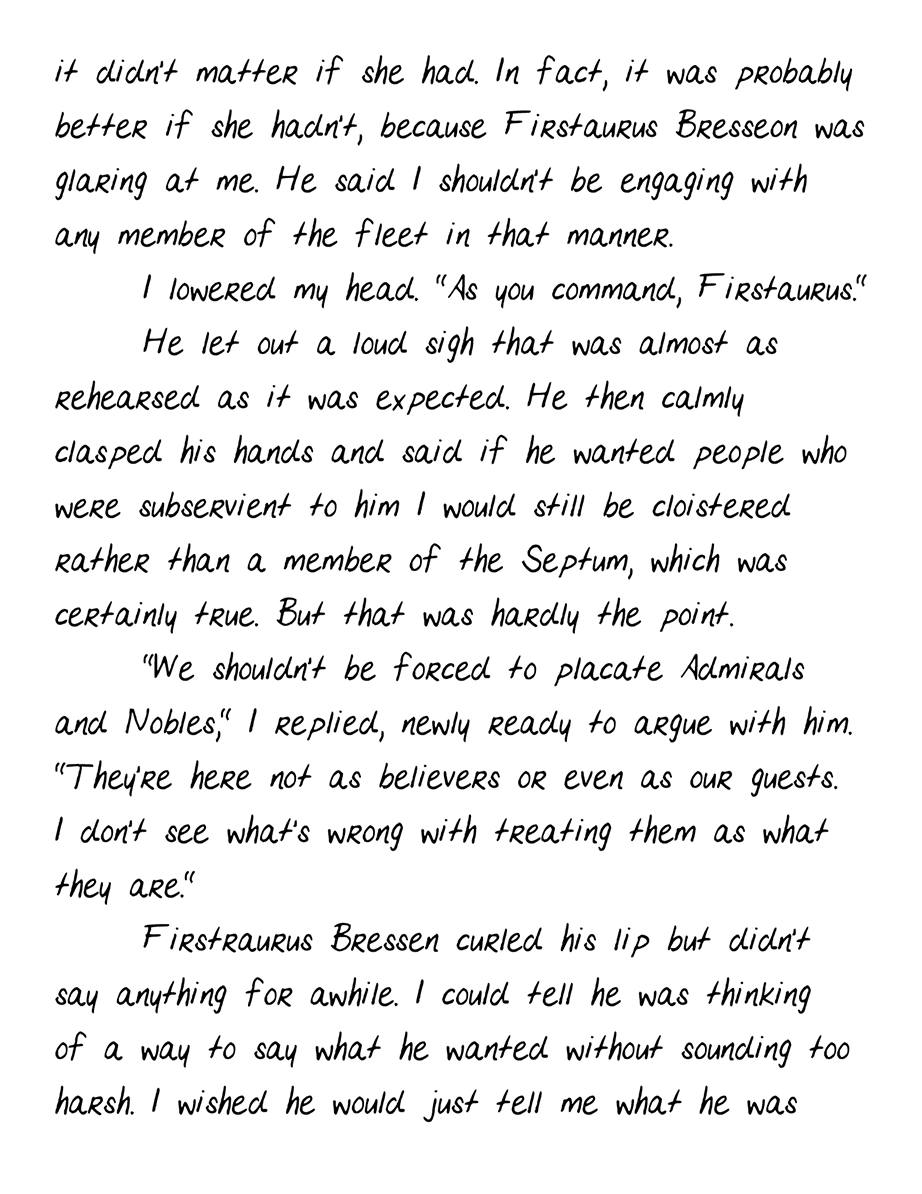 it didn't matter if she had. In fact, it was probably
better if she hadn't, because Firstaurus Bresseon was
glaring at me. He said I shouldn't be engaging with
any member of the fleet in that manner.
I lowered my head. "As you command, Firstaurus."
He let out a loud sigh that was almost as
rehearsed as it was expected. He then calmly
clasped his hands and said if he wanted people who
were subservient to him I would still be cloistered
rather than a member of the Septum, which was
certainly true. But that was hardly the point.
"We shouldn't be forced to placate Admirals
and Nobles," I replied, newly ready to argue with him.
"They're here not as believers or even as our guests.
I don't see what's wrong with treating them as what
they are."
Firstraurus Bressen curled his lip but didn't
say anything for awhile. I could tell he was thinking
of a way to say what he wanted without sounding too
harsh. I wished he would just tell me what he was